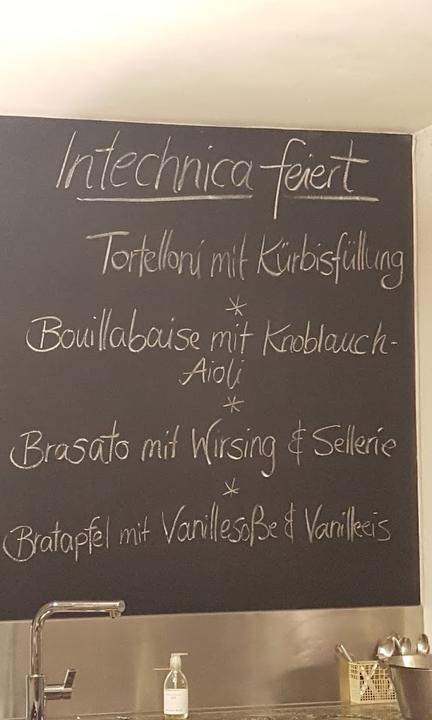 Intechnica feiert
Tortelloni mit Kürbisfüllung
*
Bouillabaise mit Knoblauch-
Aioli
*
Brasato mit Wirsing & Sellerie
*
Bratapfel mit Vanillesoße & Vanilleeis